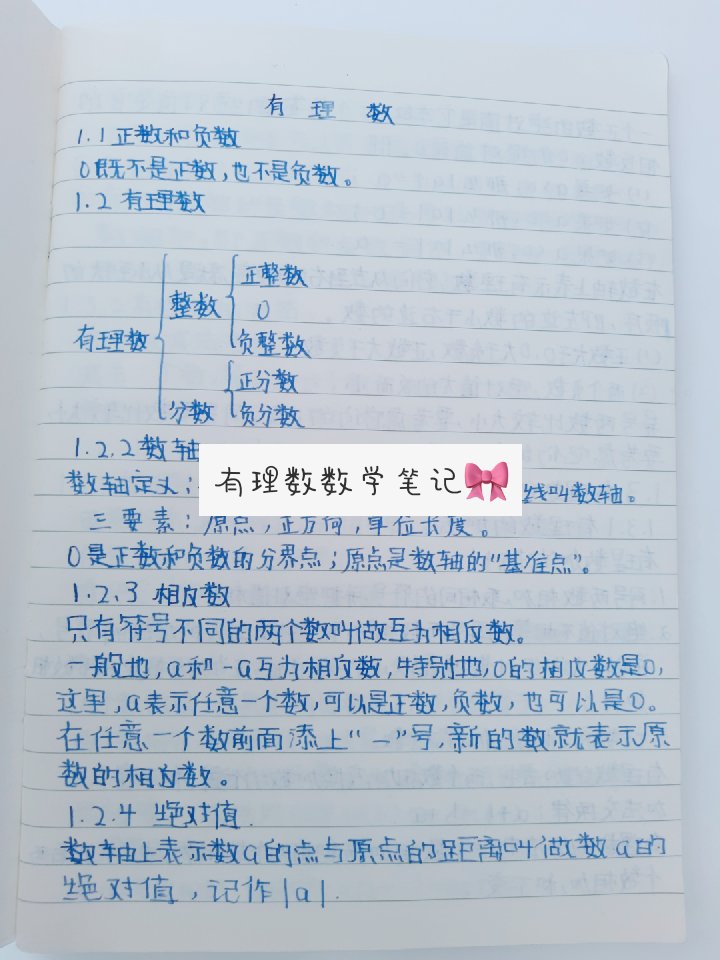 有理数
1.1 正数和负数
0既不是正数，也不是负数。
1.2 有理数
正整数
整数 0
有理数 负整数
正分数
分数 负分数
1.2.2 数轴
有理数数学笔记
数轴定义： 线叫数轴。
三要素：原点，正方向，单位长度。
0是正数和负数的分界点；原点是数轴的“基准点”。
1.2.3 相反数
只有符号不同的两个数叫做互为相反数。
一般地，a和-a互为相反数，特别地，0的相反数是0，
这里，a表示任意一个数，可以是正数，负数，也可以是0。
在任意一个数前面添上“－”号，新的数就表示原
数的相反数。
1.2.4 绝对值
数轴上表示数a的点与原点的距离叫做数a的
绝对值，记作|a|.